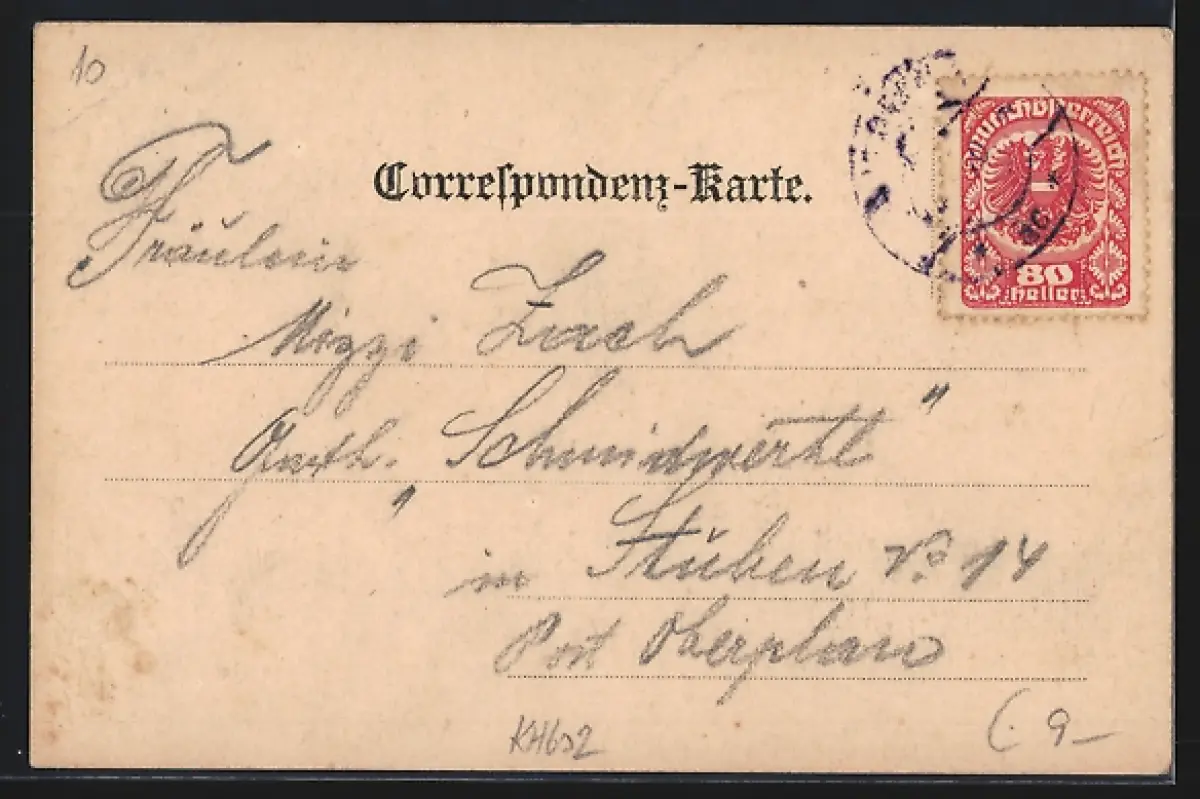 10
Correspondenz-Karte.
Deutschösterreich
80
Heller
Fräulein
Mizzi Zach
Gasth. "Schmidwertl"
in Stuben No 14
Post Oberplan
KH602
(. 9 –